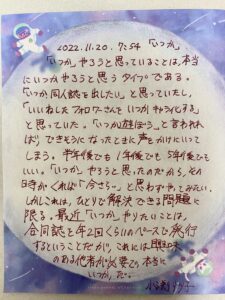 2022.11.20. 7:54 「いつか」
「いつか」やろうと思っていることは、本当
にいつかやろうと思うタイプである。
「いつか同人誌を出したい」と思っていたし、
「いいねしたフォロワーさんをいつかキャラ化する」
と思っていた。「いつか遊ぼう」と言われれ
ばできそうになったときに声をかけにいって
しまう。半年後でも1年後でも5年後でもい
い。「いつか」やろうと思ったのだから、その
時がくれば「今さら」と思わずやってみたい。
しかしこれは、ひとりで解決できる問題に
限る。最近「いつか」やりたいことは、
合同誌を年2回くらいのペースで発行
するということだが、これには興味
のある他者が必要で本当に
「いつか」だ。